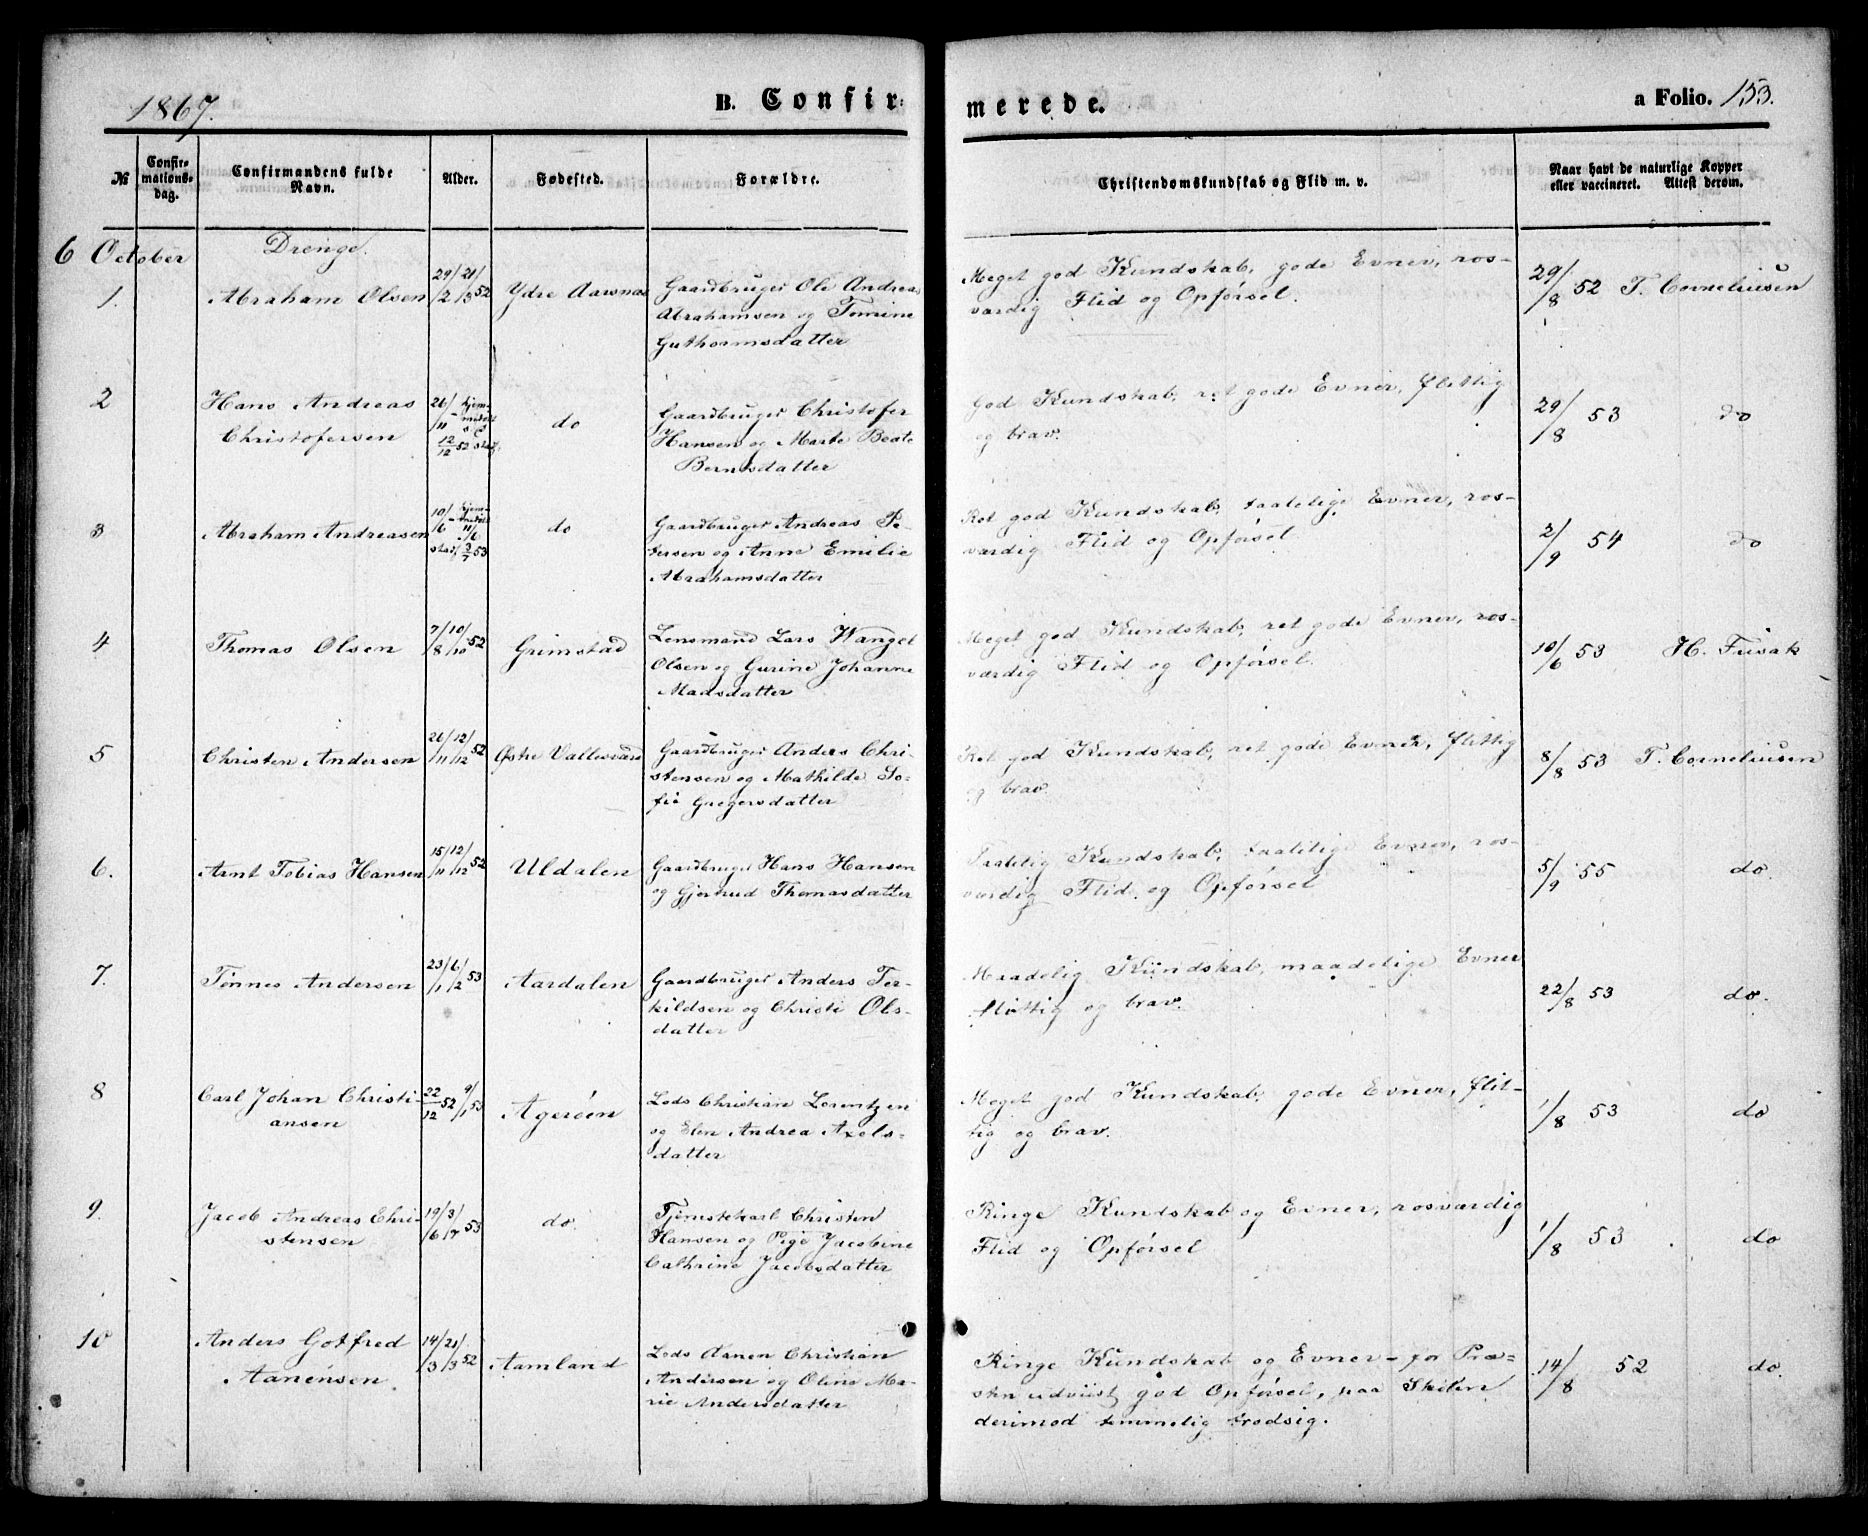 1867.
B. Confir-
merede.
a Folio. 153.
№
Confir-
mations-
dag.
Confirmandens fulde
Navn.
Alder.
Fødested.
Forældre.
Christendomskundskab og Flid m. v.
Naar havt de naturlige Kopper
eller vaccineret. Attest derom.
6 October
Drenge.
1.
Abraham Olsen
29/2 21/3 52
Ydre Aarsnæs
Gaardbruger Ole Andreas
Abrahamsen og Tomine
Guthormsdatter
Meget god Kundskab, gode Evner, ros-
værdig Flid og Opførsel.
29/8 52 T. Corneliusen
2
Hans Andreas
Christofersen
26/11 hjem-
12/12 52
do
Gaardbruger Christofer
Hansen og Marte Beate
Berntsdatter
God Kundskab, ret gode Evner, flittig
og brav.
29/8 53 do
3
Abraham Andreasen
10/6 hjem-
11/6
3/7 53
do
Gaardbruger Andreas Pe-
tersen og Anne Emilie
Abrahamsdatter
Ret god Kundskab, taalelige Evner, ros-
værdig Flid og Opførsel.
2/9 54 do
4
Thomas Olsen
7/8 10/10 52
Grimstad
Lensmand Lars Wangel
Olsen og Gurine Johanne
Madsdatter
Meget god Kundskab, ret gode Evner, ros-
værdig Flid og Opførsel.
10/6 53 H. Frisak
5
Christen Andersen
26/11 12/12 52
Østre Vallesværd
Gaardbruger Anders Chri-
stensen og Mathilde So-
fie Gregersdatter
Ret god Kundskab, ret gode Evner, flittig
og brav.
8/8 53 T. Corneliusen
6.
Arnt Tobias Hansen
15/11 12/12 52
Uldalen
Gaardbruger Hans Hansen
og Gjertrud Thomasdatter
Taalelig Kundskab, taalelige Evner, ros-
værdig Flid og Opførsel
5/9 55 do.
7.
Tønnes Andersen
23/1 6/2 53
Aardalen
Gaardbruger Anders Ter-
kildsen og Christi Ols-
datter
Maadelig Kundskab, maadelige Evner
flittig og brav.
22/8 53 do.
8
Carl Johan Christi-
ansen
22/12 52 9/1 53
Agerøen
Lods Christian Lorentzen
og Elen Andrea Axels-
datter
Meget god Kundskab, gode Evner, flit-
tig og brav.
1/8 53 do
9.
Jacob Andreas Chri-
stensen
19/6 3/7 53
do.
Tjenestekarl Christen
Hansen og Pige Jacobine
Cathrine Jacobsdatter
Ringe Kundskab og Evner, rosværdig
Flid og Opførsel
1/8 53 do
10
Anders Gotfred
Aanensen
14/3 21/3 52
Aamland
Lods Aanen Christian
Andersen og Oline Ma-
rie Andersdatter
Ringe Kundskab og Evner – for Præ-
sten udviist god Opførsel, paa Skolen
derimod temmelig trodsig.
14/8 52 do.